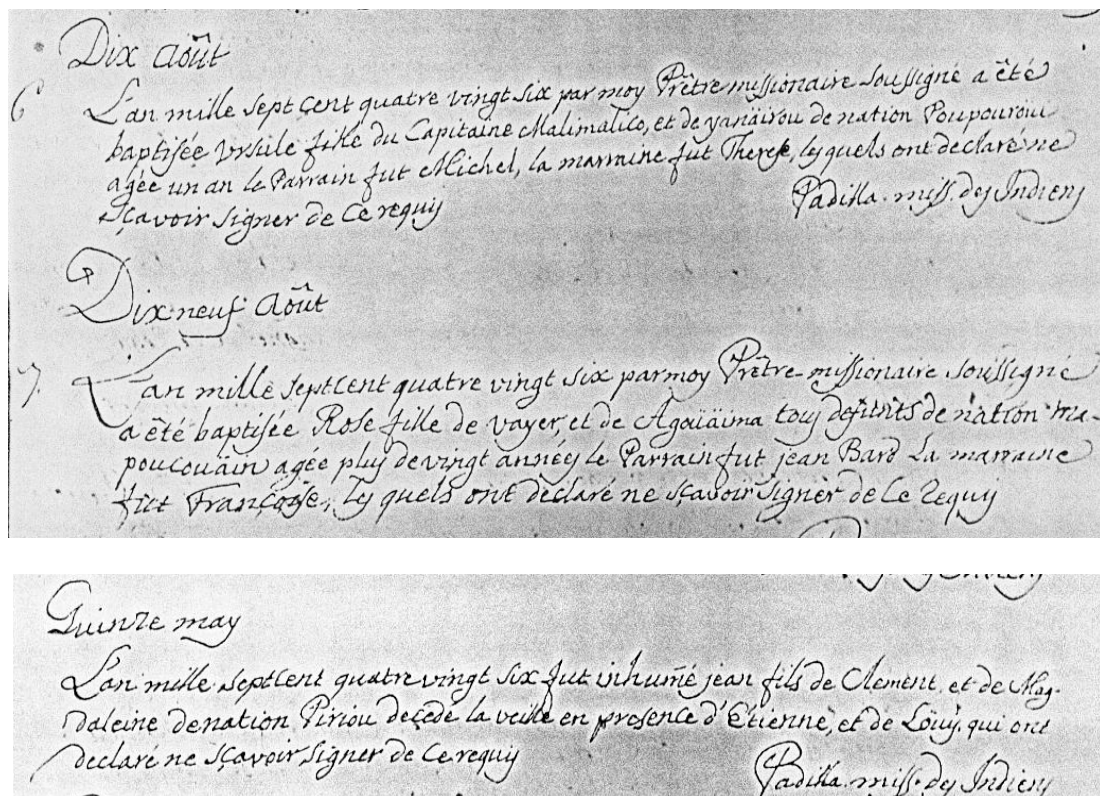 Dix Août
6 L'an mille sept cent quatre vingt six par moy Prêtre missionaire soussigné a été
baptisée Ursule fille du Capitaine Malimalico, et de yanaïrou de nation Poupourou
agée un an le Parrain fut Michel, la marraine fut Therese, lesquels ont declaré ne
sçavoir signer de ce requis
Padilla. miss. des Indiens
Dix neuf Août
7 L'an mille sept cent quatre vingt six par moy Prêtre missionaire soussigné
a été baptisée Rose fille de vayer, et de Agoüaima tous defunts de nation ma-
poucouain agée plus de vingt années le Parrain fut jean Bard La marraine
fut Françoise, lesquels ont declaré ne sçavoir signer de ce requis
Quinze may
L'an mille sept cent quatre vingt six fut inhumé jean fils de Clement, et de Mag-
daleine de nation Piriou decedé la veille en presence d'Etienne, et de Loüis, qui ont
declaré ne sçavoir signer de ce requis
Padilla. miss. des Indiens